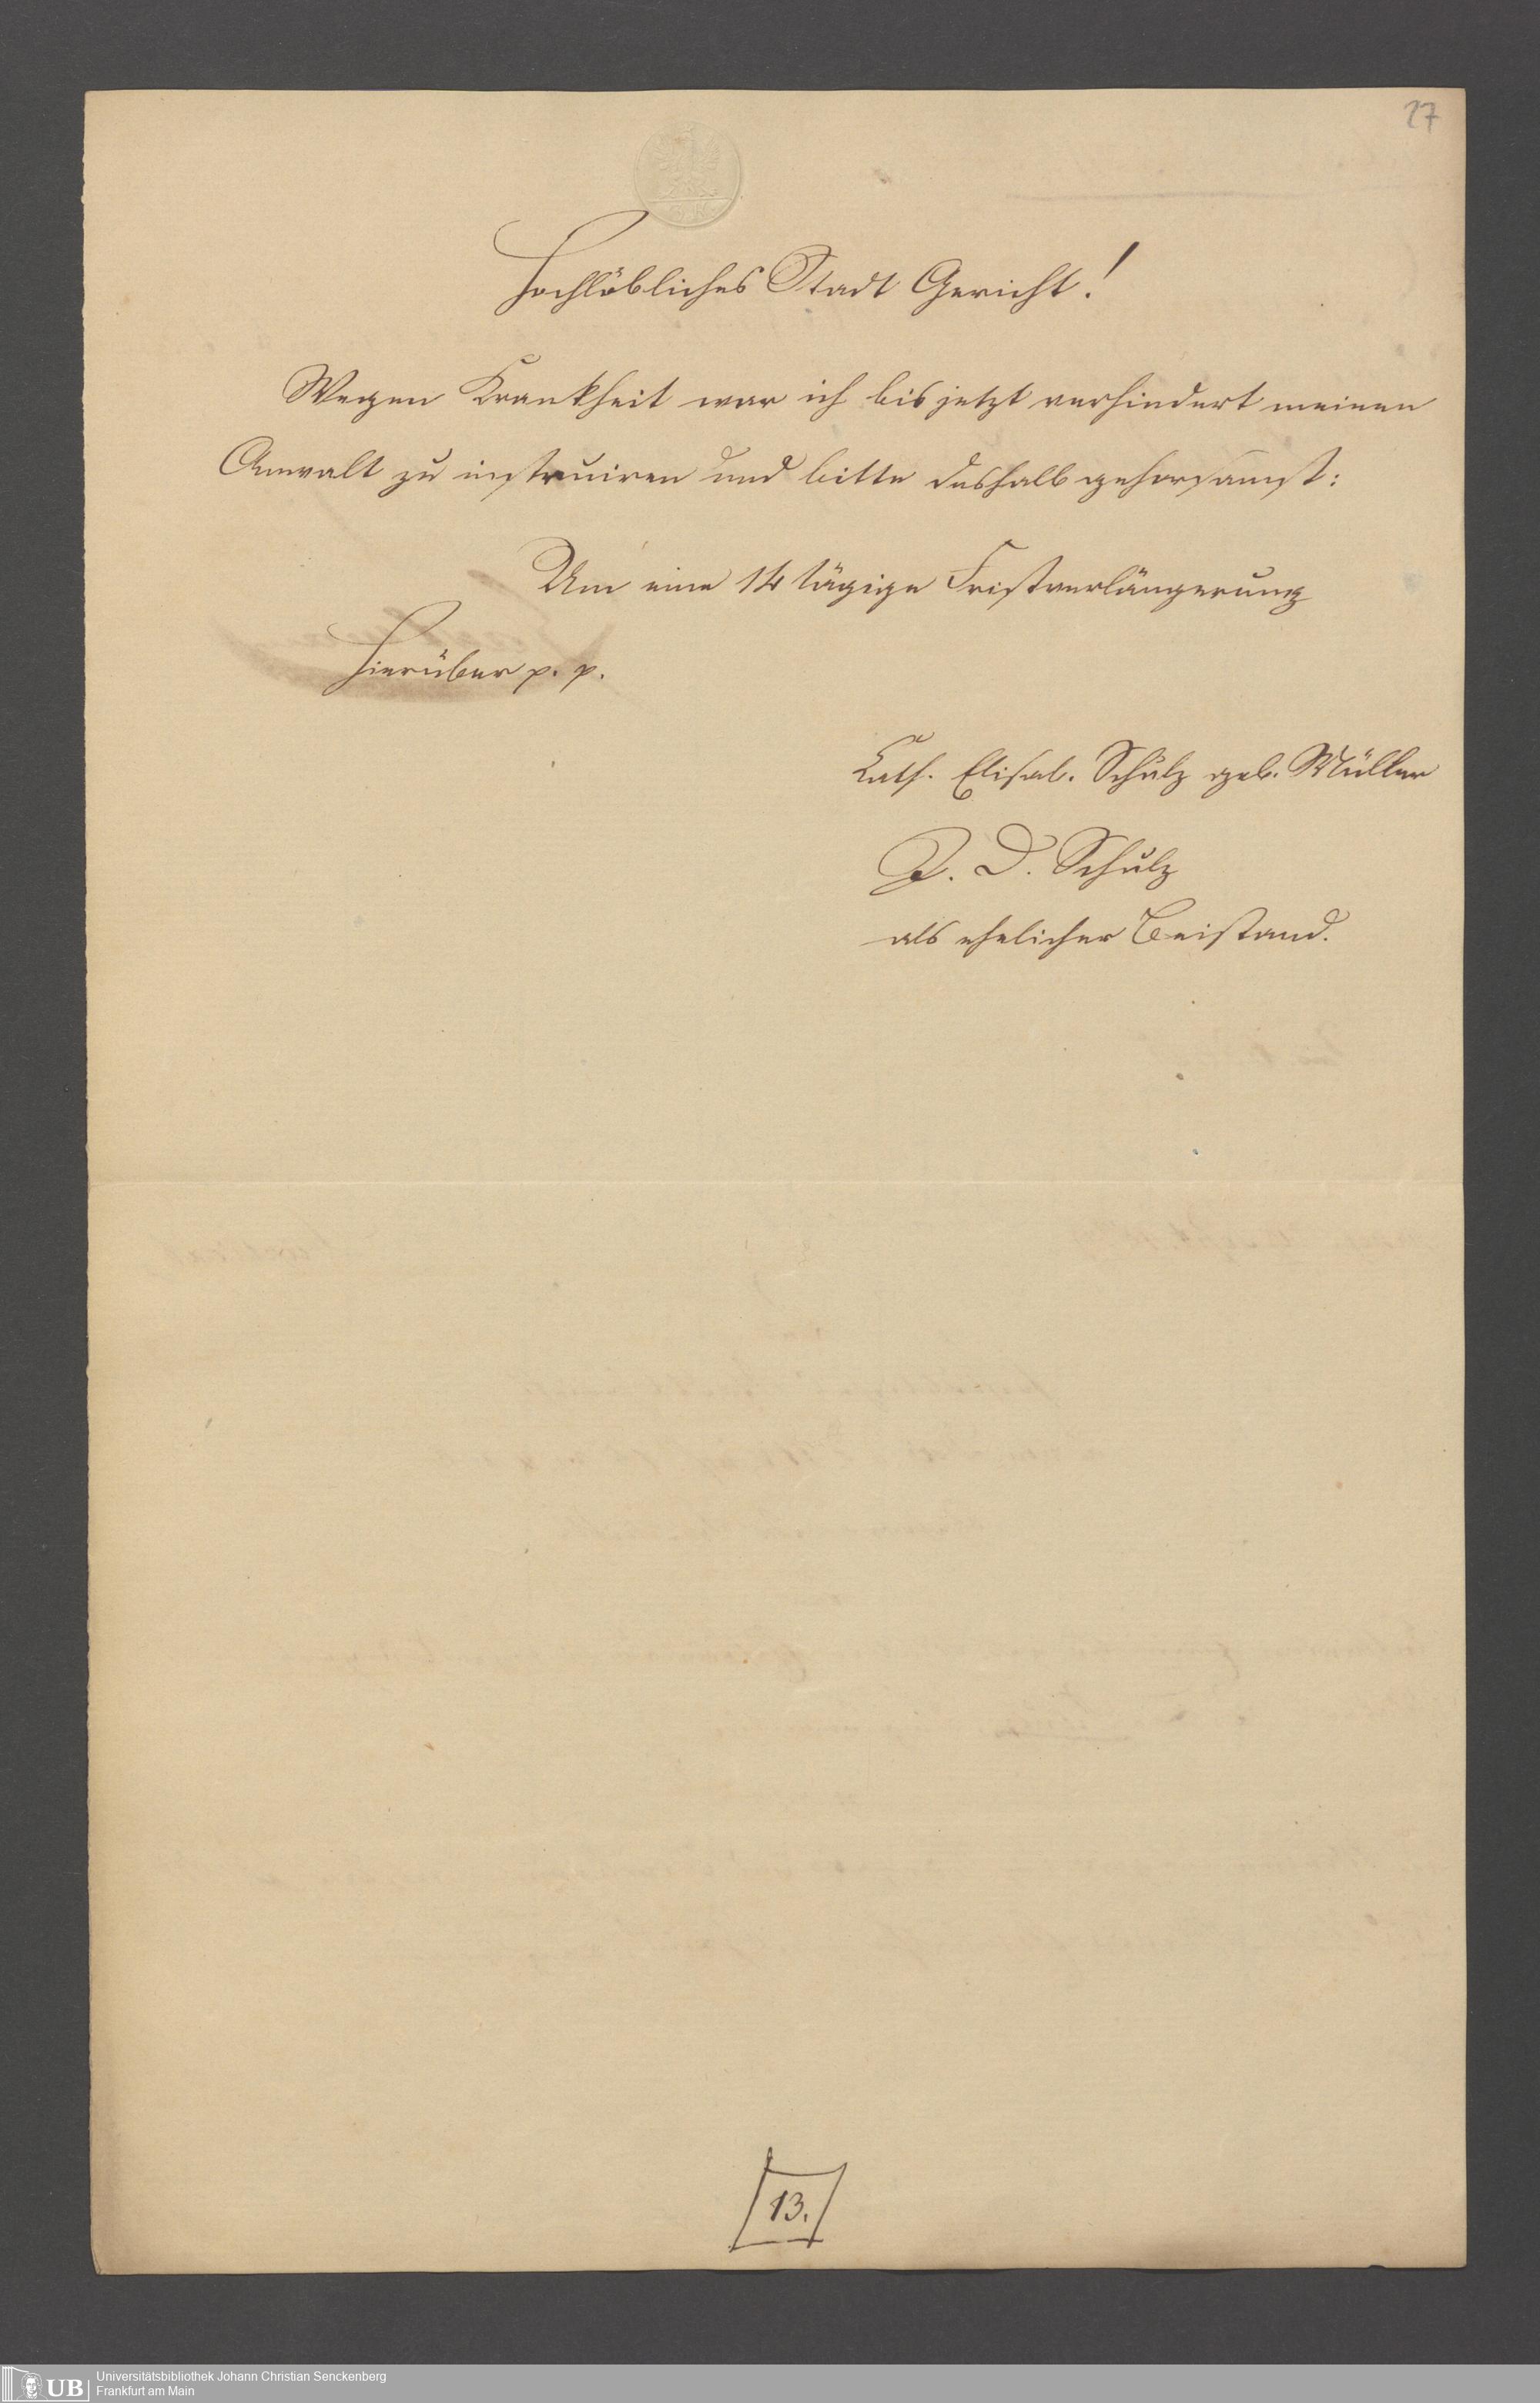 27
Hochlöbliches Stadt Gericht!
Wegen Krankheit war ich bis jetzt verhindert meinen
Anwalt zu instruiren und bitte deshalb gehorsamst:
Um eine 14 tägige Fristverlängerung
Hierüber p. p.
Cath. Elisab. Schulz geb. Müller
J. D. Schulz
als ehelicher Beistand.
13.
UB
Universitätsbibliothek Johann Christian Senckenberg
Frankfurt am Main